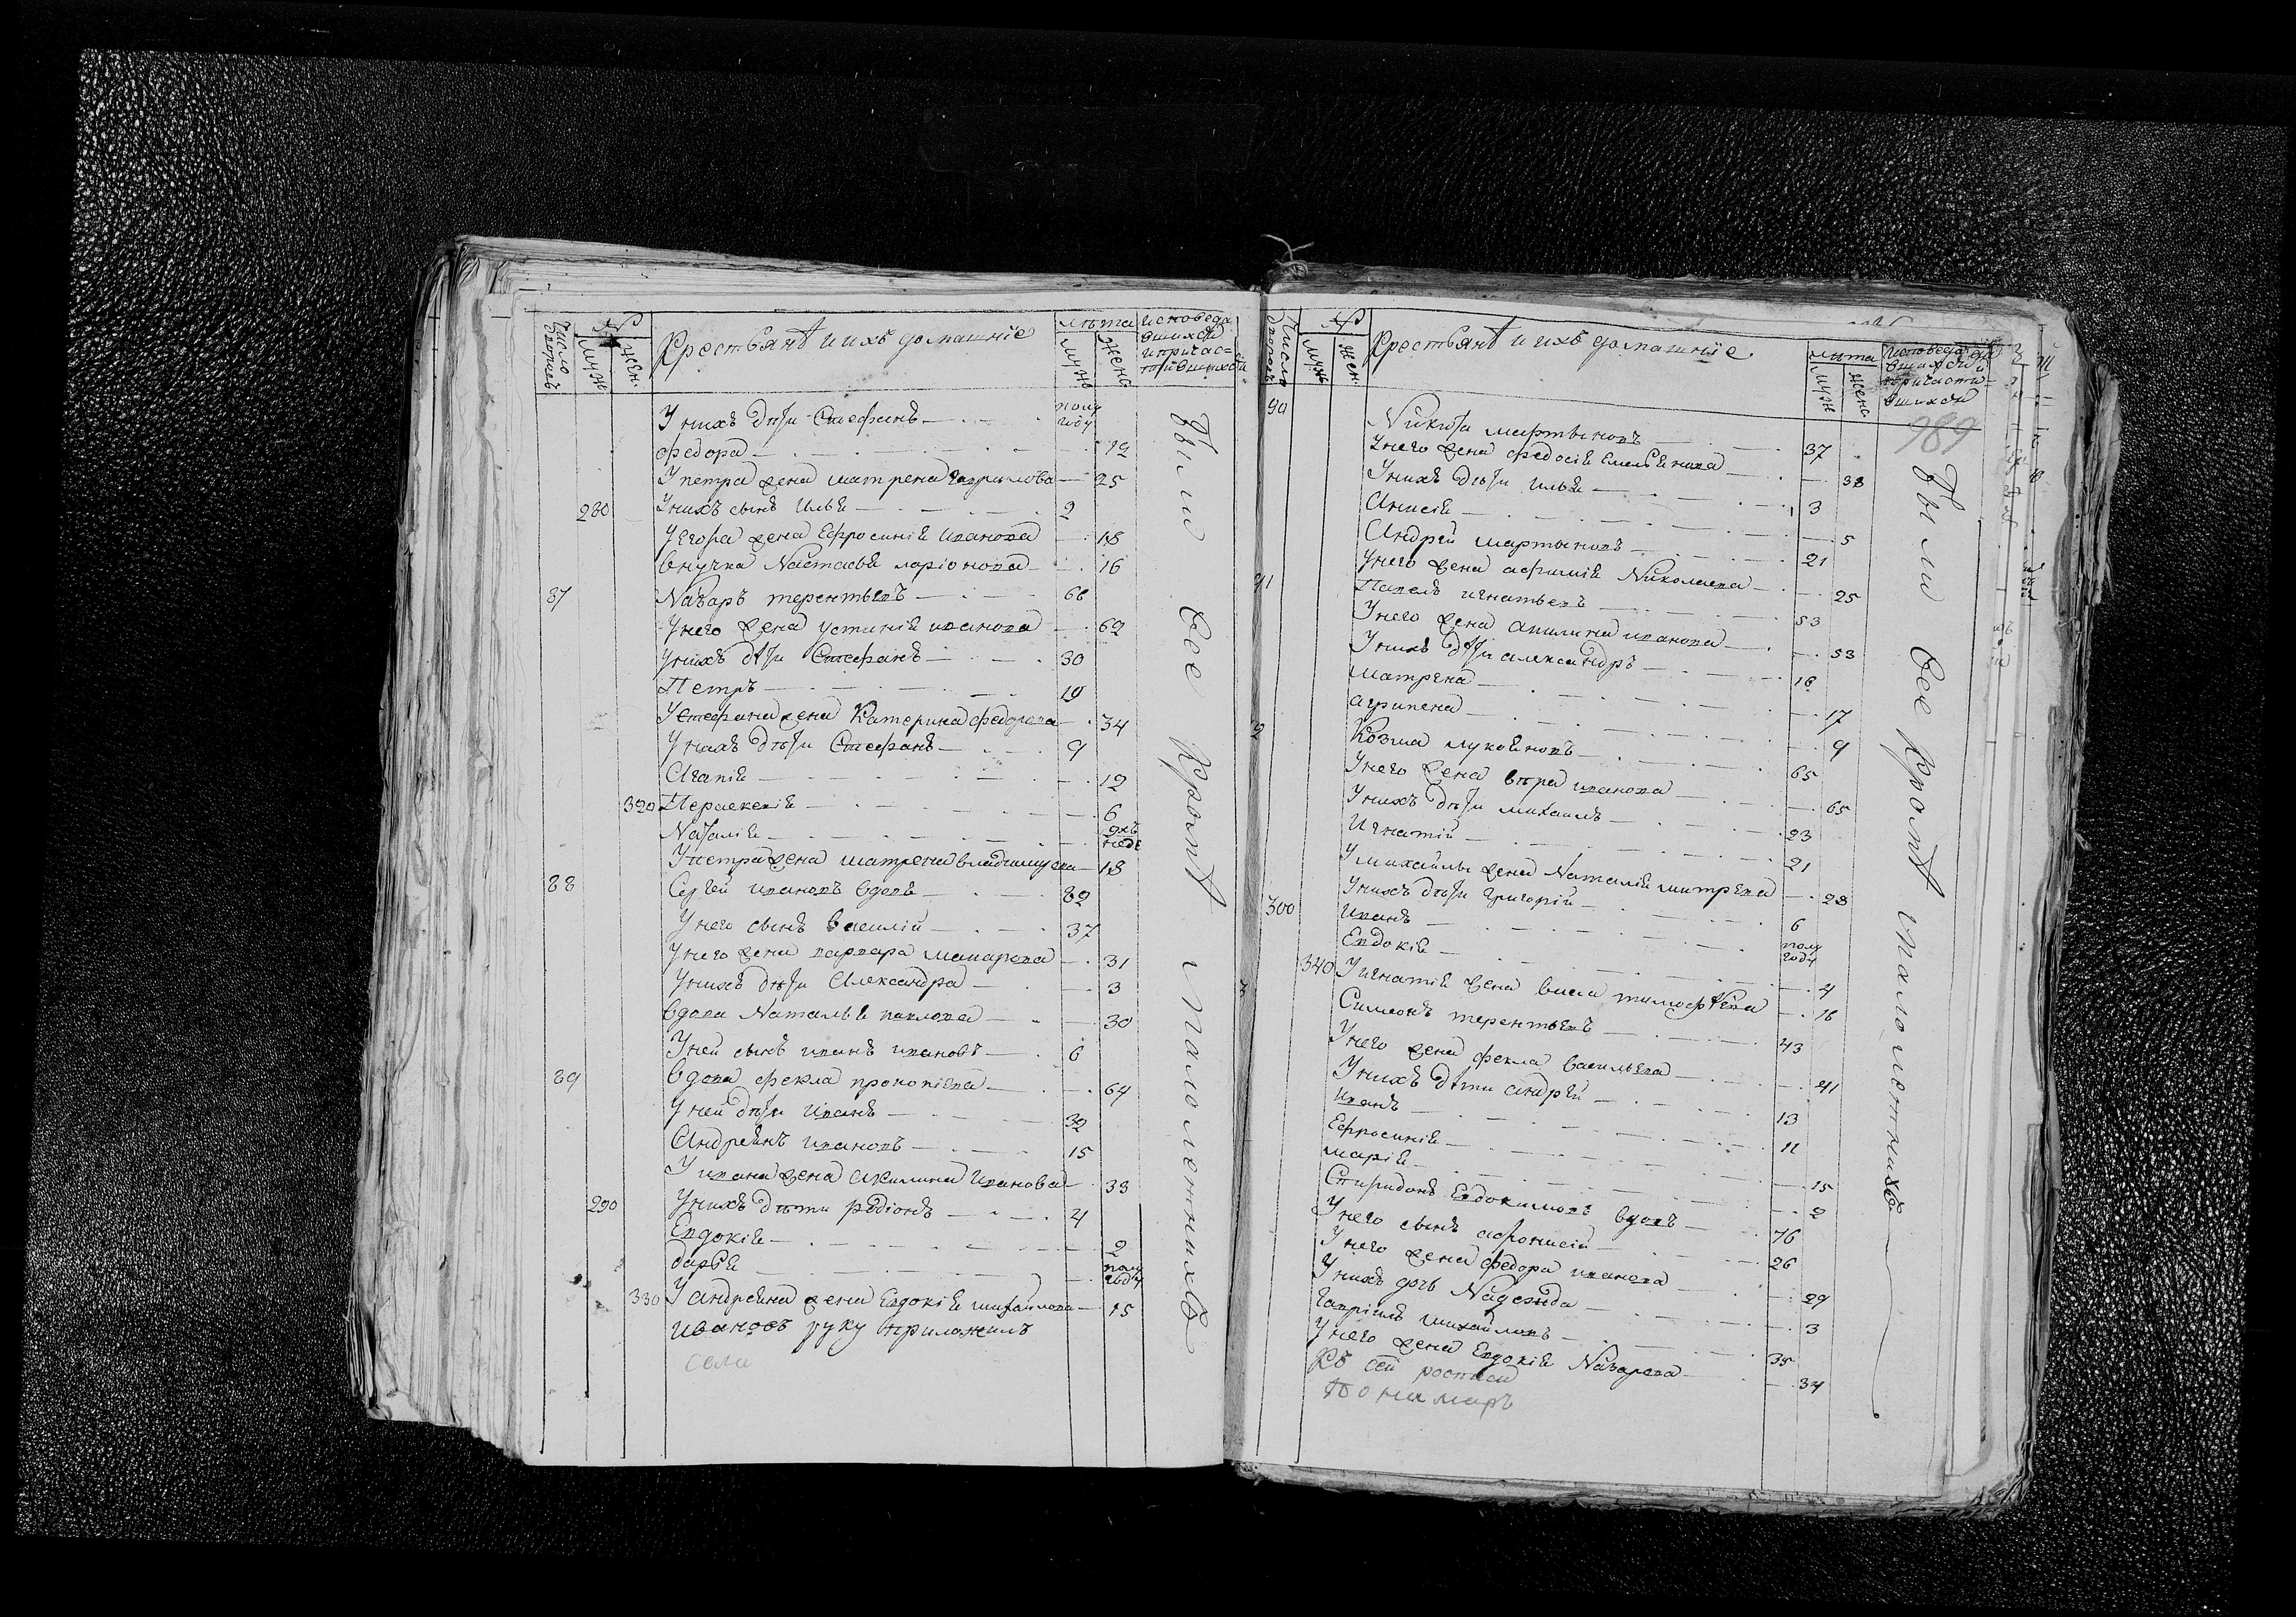 Число дворовъ
№
муж
жен.
Крестьянѣ и ихъ домашніе
лѣта
муж
жена
исповеда
вшихся
и причас=
тившихся
У нихъ дѣти Стефанъ полу году
Федора 12
У петра жена матрена Гаврилова 25
280 У нихъ сынъ Илья 2
У Егора жена Ефросинія иванова 18
внучка Настасья ларіонова 16
87 Назаръ терентьевъ 66
У него жена устинія иванова 62
У нихъ дѣти Стефанъ 30
Петръ 19
У Стефана жена Катерина федорова 34
У нихъ дѣти Стефанъ 9
Агапія 12
320 Пераскевія 6
Наталія
У петра жена матрена 18
88 Сергей ивановъ вдовъ 82
У него сынъ василій 37
У него жена варвара макарова 31
У нихъ дѣти Александра 3
вдова Наталья павлова 30
У ней сынъ иванъ ивановъ 6
89 вдова фекла прокопіева 64
У ней дѣти Иванъ 32
Андреянъ ивановъ 15
У ивана жена акилина Иванова 33
290 У нихъ дѣти родіонъ 4
Евдокія 2
дарья полу году
330 У андреяна жена Евдокія михайлова 15
Ивановъ руку приложилъ
села
Были все кромѣ малолетнихъ
Число дворовъ
№
муж
жен.
Крестьянѣ и ихъ домашніе
лѣта
муж
жена
исповеда
вшихся и
причасти-
вшихся
686
90 Никита мартыновъ 37
У него жена федосія Емельянова 38
У нихъ дѣти илья 3
Анисія 5
Андрей мартыновъ 21
У него жена афимія Николаева 25
91 Павелъ игнатьевъ 53
У него жена акилина иванова 53
У нихъ дѣти александръ 16
матрена 17
агрипена 9
2 Козма лукояновъ 65
У него жена вѣра иванова 65
У нихъ дѣти михаилъ 23
Игнатій 21
У михайлы жена Наталія митрева 23
300 У нихъ дѣти григорій 6
Иванъ полу году
Евдокія 4
340 У игнатія жена васа тимофѣева 18
3 Симеонъ терентьевъ 43
У него жена фекла васильева 41
У нихъ дѣти андрей 13
Иванъ 11
Ефросинія 15
марія 2
Спиридонъ Евдокимовъ вдовъ 76
У него сынъ афонасій 26
У него жена федора иванова 29
У нихъ дочь Надежда 3
Гаврилъ михайловъ 35
У него жена Евдокія Назарова 34
Къ сей росписи
Пономарь
Были все кромѣ малолетнихъ